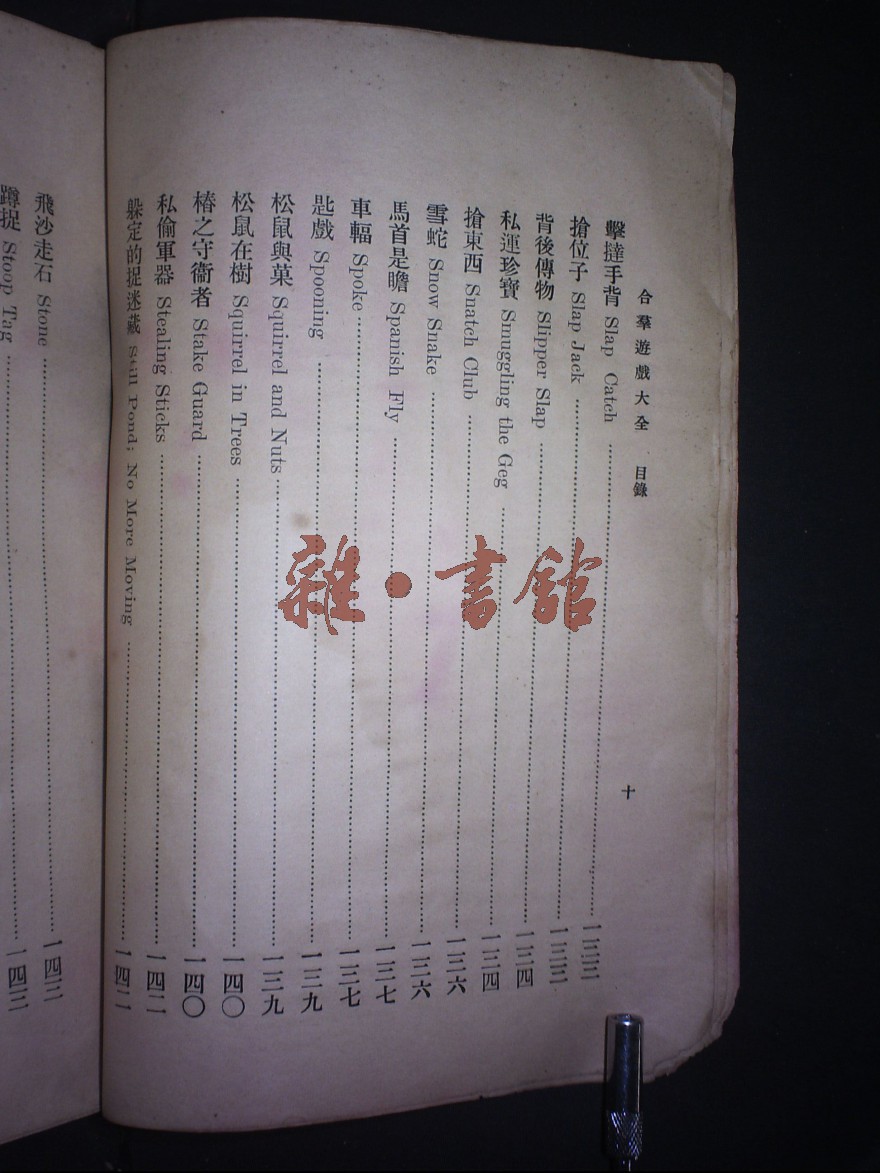 合羣遊戲大全 目錄 十
擊撻手背 Slap Catch 一三三
搶位子 Slap Jack 一三三
背後傳物 Slipper Slap 一三四
私運珍寶 Smuggling the Geg 一三四
搶東西 Snatch Club 一三六
雪蛇 Snow Snake 一三六
馬首是瞻 Spanish Fly 一三七
車輻 Spoke 一三七
匙戲 Spooning 一三九
松鼠與菓 Squirrel and Nuts 一三九
松鼠在樹 Squirrel in Trees 一四〇
椿之守衞者 Stake Guard 一四〇
私偷軍器 Stealing Sticks 一四二
躲定的捉迷藏 Still Pond; No More Moving 一四二
飛沙走石 Stone 一四三
蹲捉 Stoop Tag 一四三
雜·書館